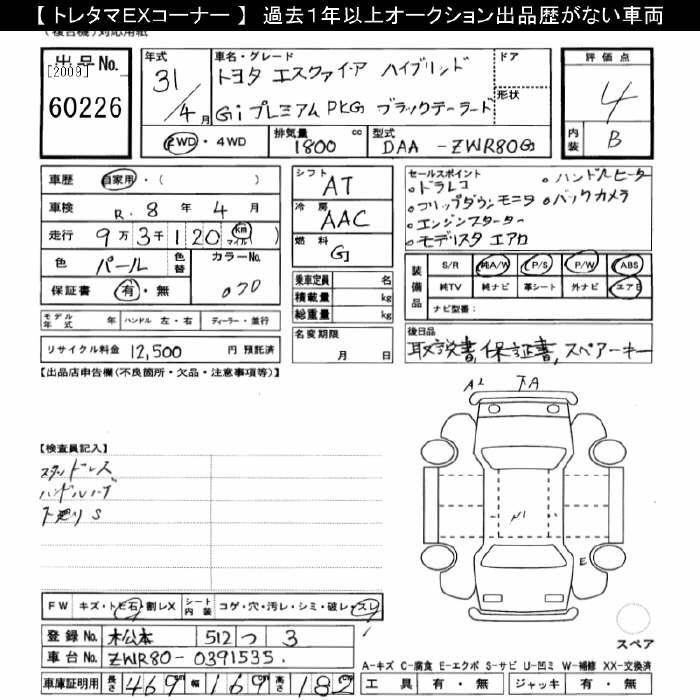 【トレタマEXコーナー】 過去1年以上オークション出品歴がない車両
(複合機)対応用紙
出品No.
[2009]
60226
年式
31/4月
車名・グレード
トヨタ エスクァイア ハイブリッド
Gi プレミアムPKG ブラックテーラード
ドア
形状
評価点
4
内装
B
2WD・4WD
排気量
1800 cc
型式
DAA-ZWR80G
車歴 自家用・( )
車検 R. 8年 4月
走行 9万3千120 km マイル )
色 パール
色替
カラーNo.
070
保証書 有・無
モデル年式 年 ハンドル 左・右 ディーラー・並行
リサイクル料金 12,500 円 預託済
シフト
AT
冷房
AAC
燃料
G
乗車定員 名
積載量 kg
総重量 kg
名変期限
月 日
セールスポイント
・ドラレコ ・ハンドルヒーター
・フリップダウンモニタ ・バックカメラ
・エンジンスターター
・モデリスタ エアロ
装備品
S/R 純A/W P/S P/W ABS
純TV 純ナビ 革シート 外ナビ エアB
ナビ型番:
後日品
取説書, 保証書, スペアーキー
【出品店申告欄(不良箇所・欠品・注意事項等)】
A2 下A
【検査員記入】
スタッドレス
下廻りS
E
FW キズ・トビ石・割レX シート内装 コゲ・穴・汚レ・シミ・破レ・スレ
登録No. 松本 512 つ 3
車台No. ZWR80-0391535.
車庫証明用 長さ 469 幅 169 高さ 182
スペア
A-キズ C-腐食 E-エクボ S-サビ U-凹ミ W-補修 XX-交換済
工具 有・無 ジャッキ 有・無